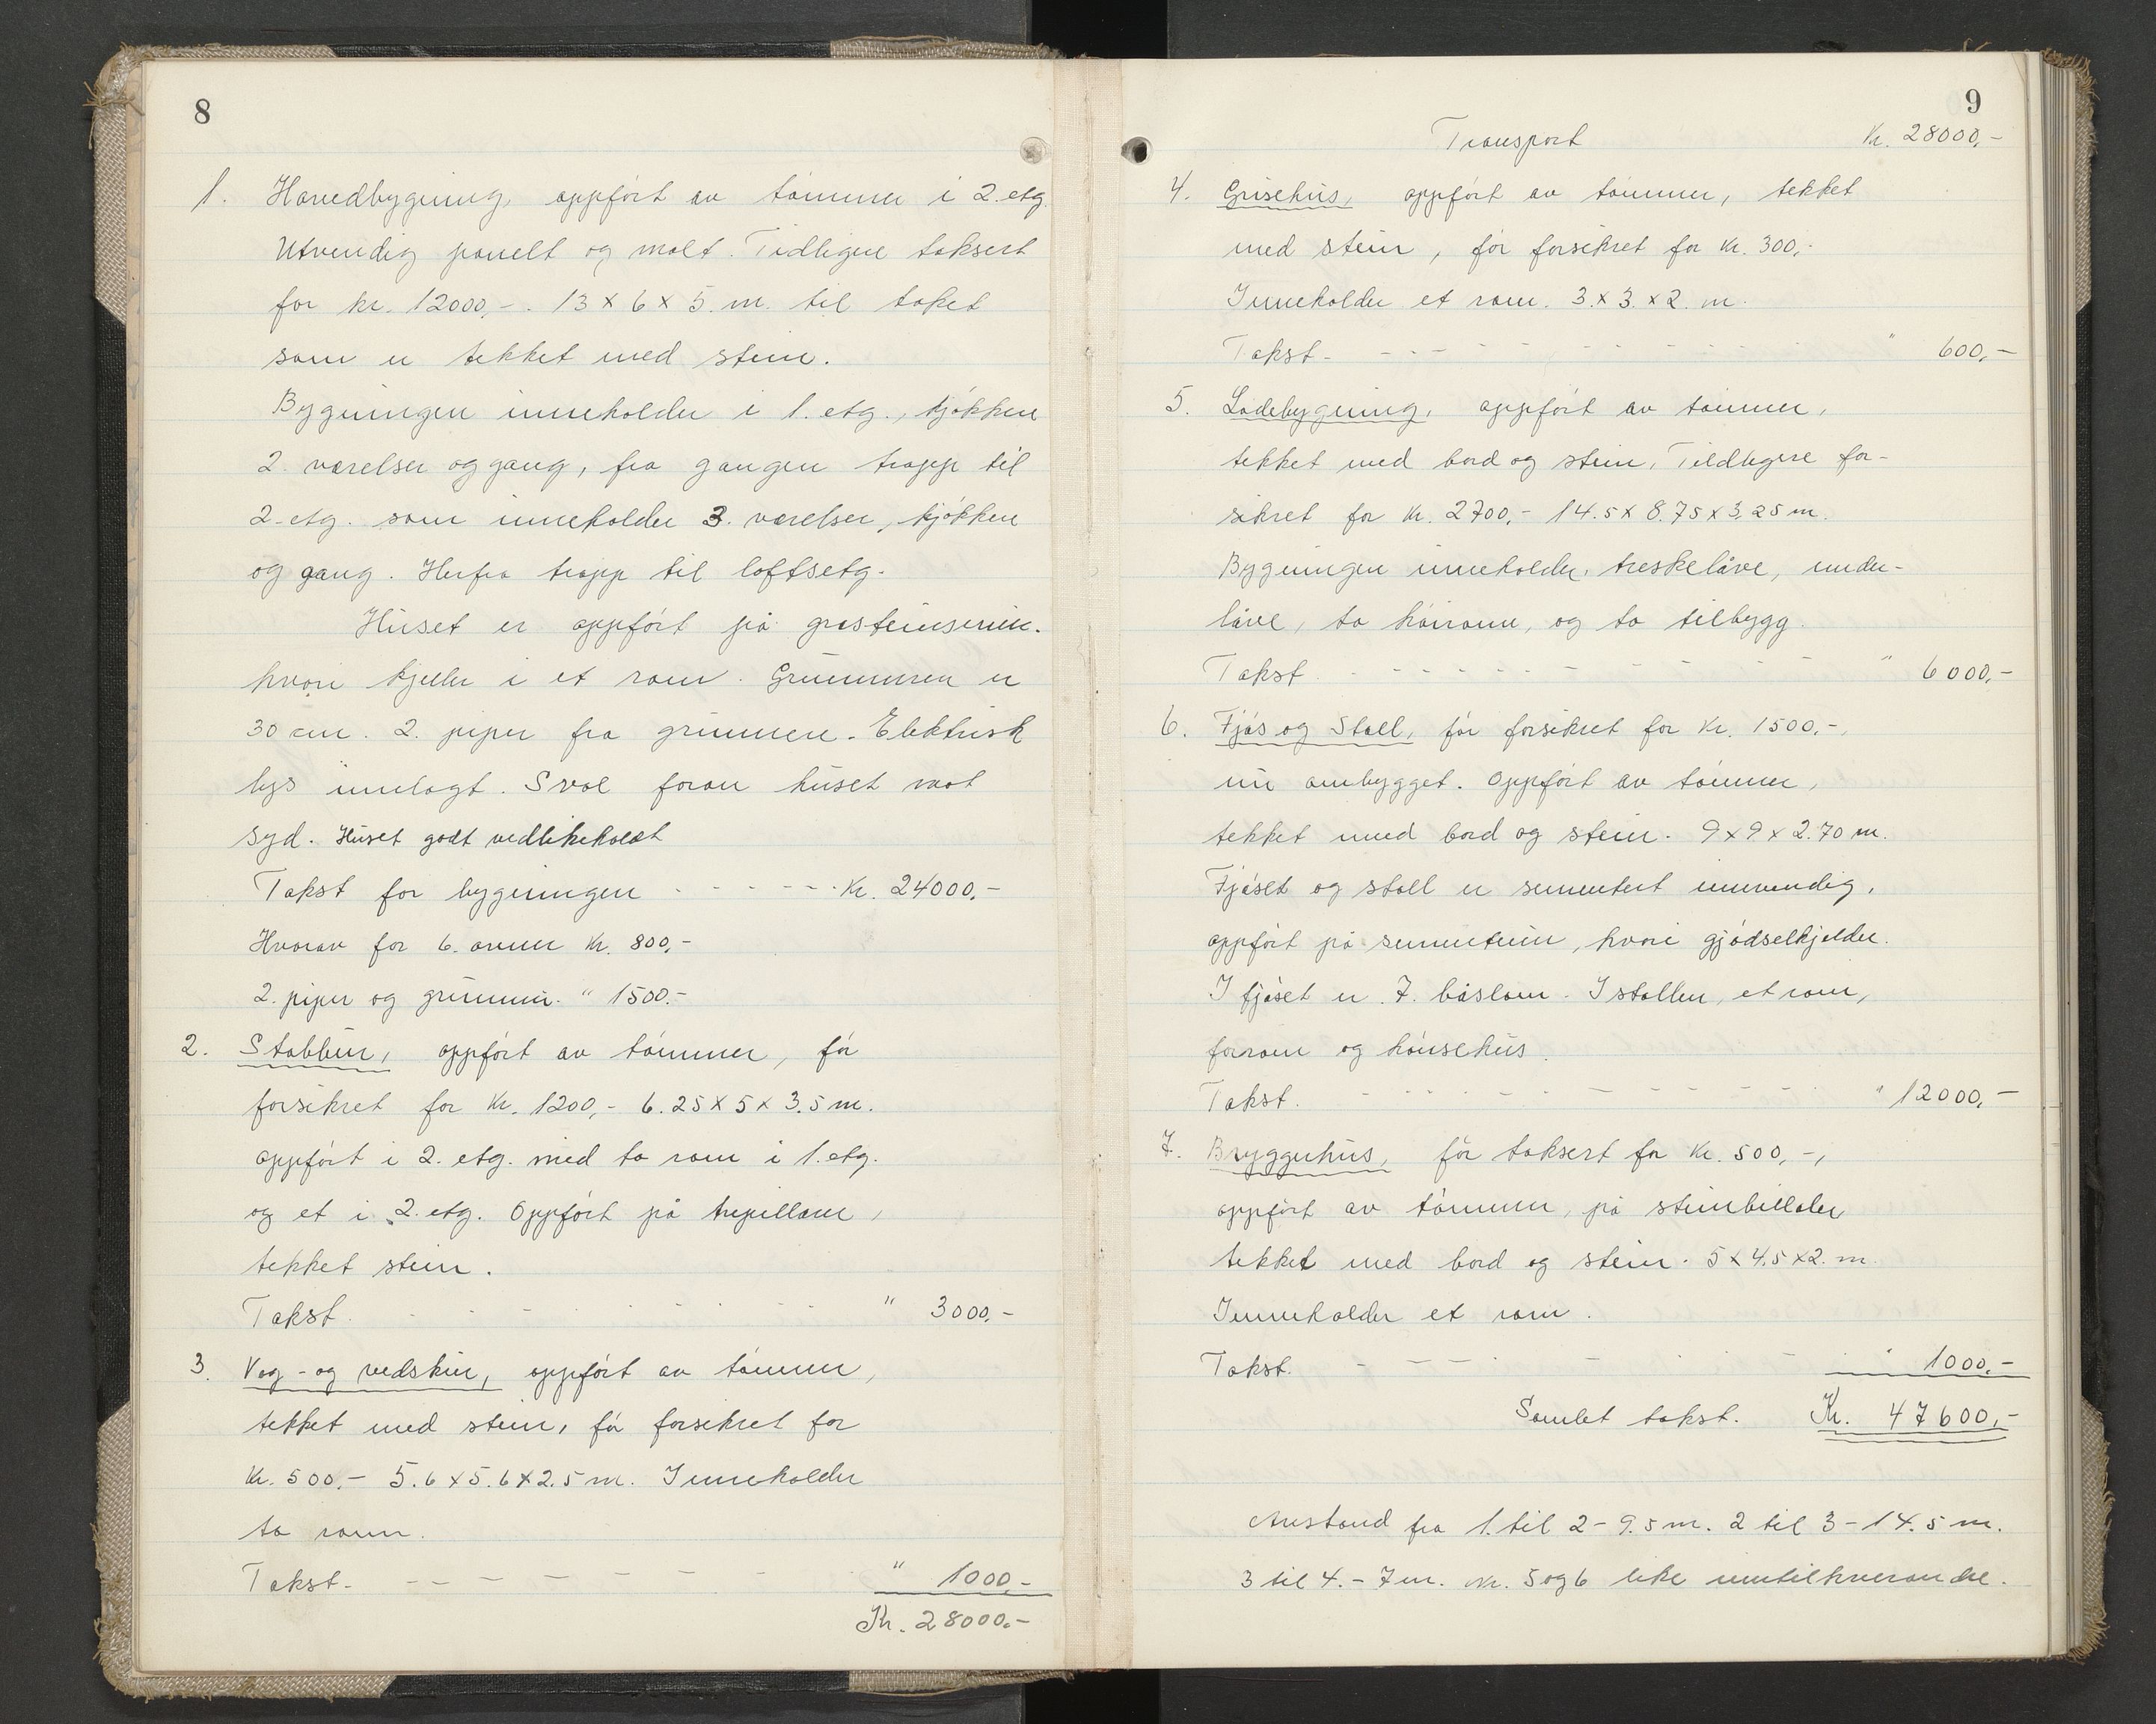 8
1. Hovedbygning, oppført av tømmer i 2. etg.
Utvendig panelt og malt. Tidligere taksert
for kr. 12000,-. 13 x 6 x 5. m. til taket
som er tekket med stein.
Bygningen inneholder i 1. etg., kjøkken
2. værelser og gang, fra gangen trapp til
2. etg. som inneholder 3. værelser, kjøkken
og gang. Herfra trapp til loftsetg.
Huset er oppført på gråsteinsmur.
hvori kjeller i et rom. Grunnmuren er
30 cm. 2. piper fra grunnen. Elektrisk
lys innlagt. Sval foran huset mot
syd. Huset godt vedlikeholdt
Takst for bygningen - - - - - - Kr. 24000,-
Hvorav for 6. ovner Kr. 800,-
2. piper og grunnmur. " 1500.-
2. Stabbur, oppført av tømmer, før
forsikret for Kr. 1200,- 6.25 x 5 x 3.5 m.
oppført i 2. etg. med to rom i 1. etg.
og et i 2. etg. Oppført på trepillarer,
tekket stein.
Takst. - - - - - - - " 3000,-
3. Vog- og vedskur, oppført av tømmer,
tekket med stein, før forsikret for
Kr. 500.- 5.6 x 5.6 x 2.5 m. Inneholder
to rom.
Takst. - - - - - - - - " 1000,-
Kr. 28000.-
9
Transport Kr. 28000,-
4. Grisehus, oppført av tømmer, tekket
med stein, før forsikret for Kr. 300,-
Inneholder et rom. 3. x 3. x 2. m.
Takst - - - - - - - - - - " 600,-
5. Ladebygning, oppført av tømmer,
tekket med bord og stein. Tildligere for-
sikret for Kr. 2700,- 14.5 x 8.75 x 3,25 m.
Bygningen inneholder, treskelåve, under-
låve, to høirom, og to tilbygg.
Takst. - - - - - - - - - - " 6000,-
6. Fjøs og Stall, før forsikret for Kr. 1500,-,
nu ombygget. Oppført av tømmer,
tekket med bord og stein. 9 x 9 x 2.70 m.
Fjøset og stall er sementert innvendig,
oppført på sementmur, hvori gjødselkjelder.
I fjøset er 7. båsrom. I stallen, et rom,
forrom og hønsehus.
Takst. - - - - - - - - - - " 12000,-
7. Bryggerhus, før taksert for Kr. 500,-,
oppført av tømmer, på steinbillaler
tekket med bord og stein. 5 x 4,5 x 2. m.
Inneholder et rom.
Takst. - - - - - - - - " 1000,-
Samlet takst. Kr. 47600,-
Avstand fra 1. til 2 - 9.5 m. 2 til 3 - 14.5 m.
3 til 4. - 7 m. Nr. 5 og 6 like inntilhverandre.